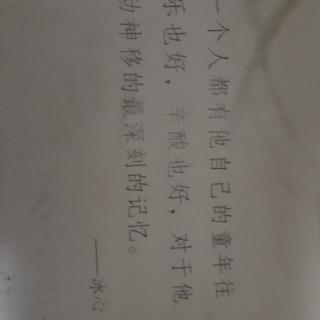 一个人都有他自己的童年往
乐也好，辛酸也好，对于他
动神移的最深刻的记忆。
——冰心